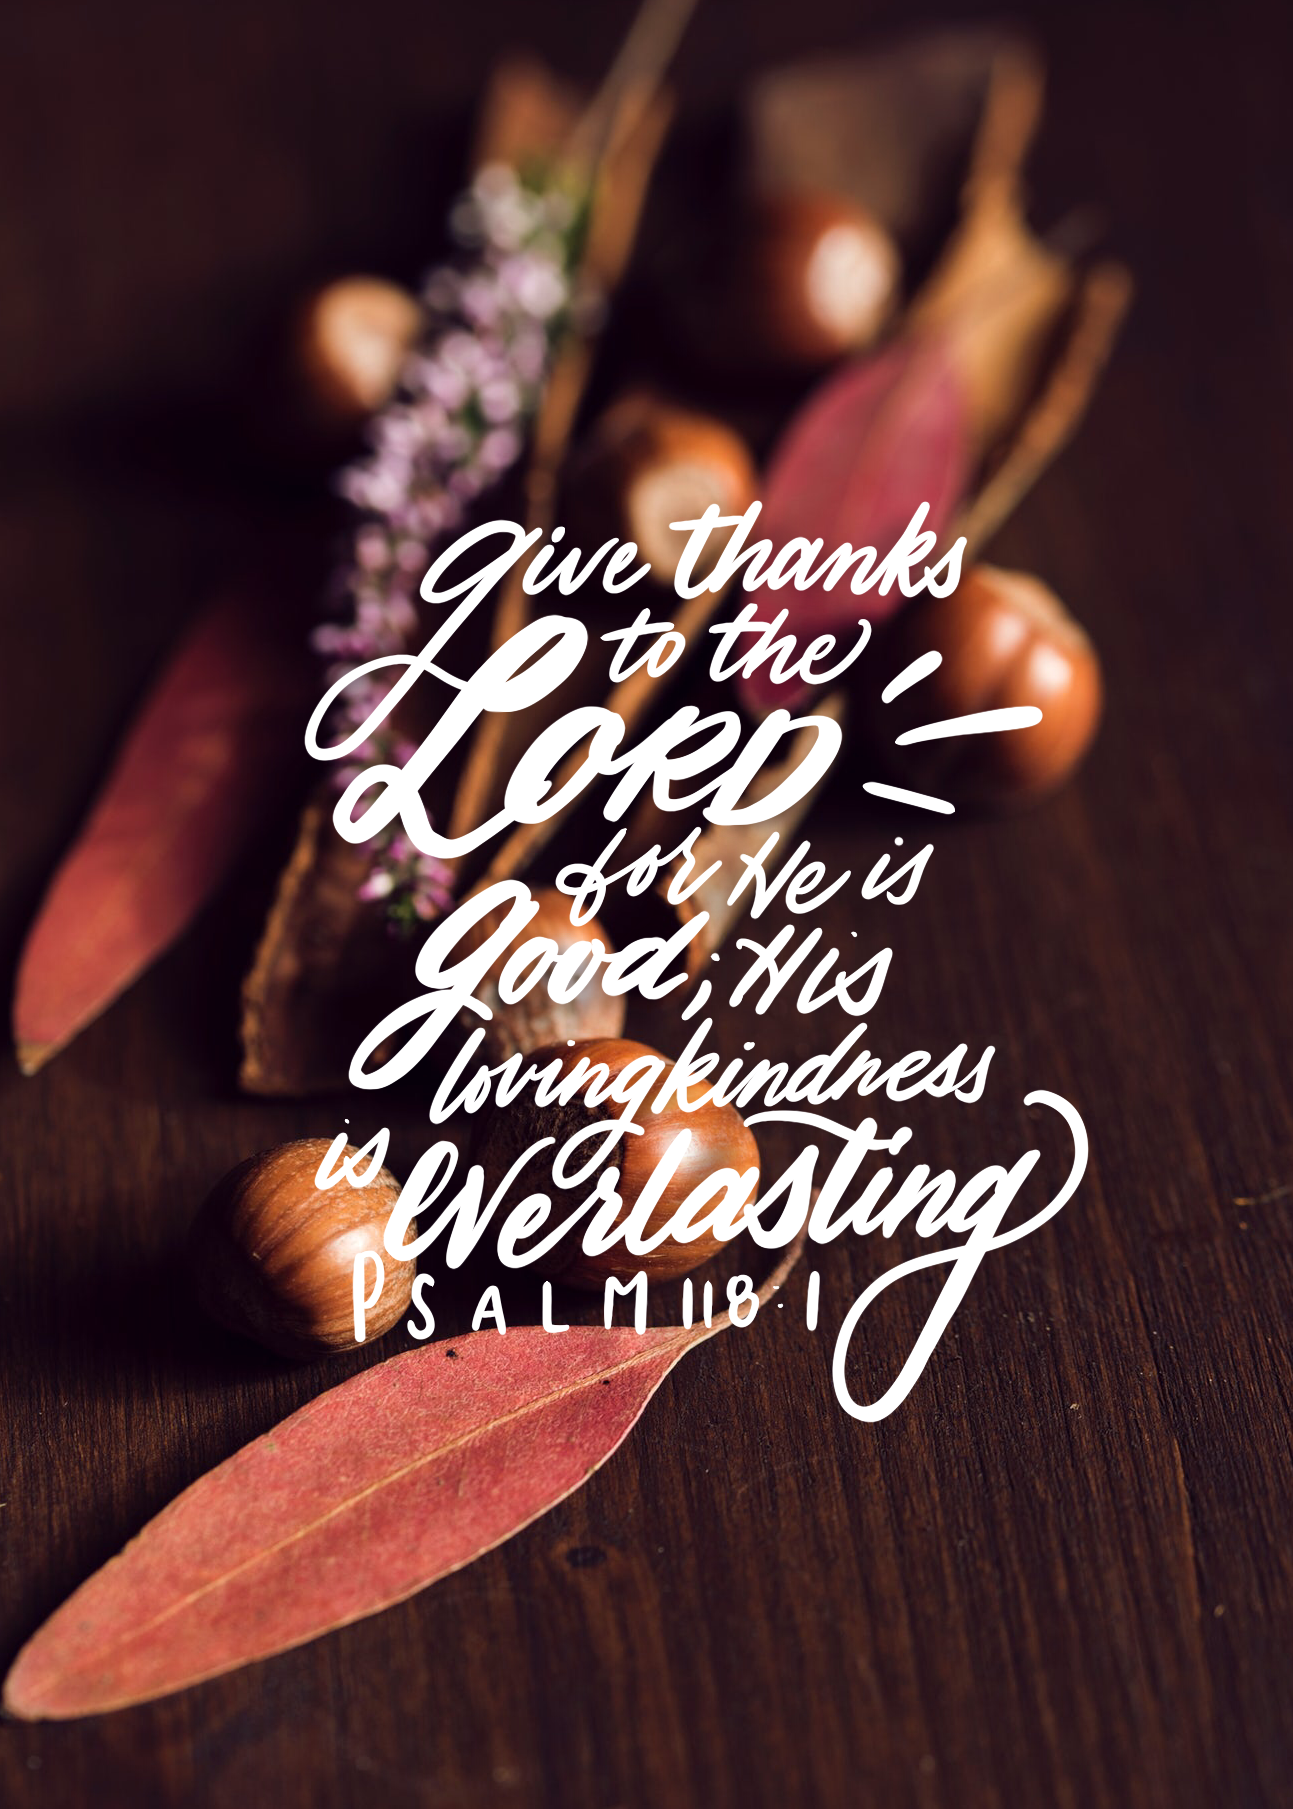 give thanks
to the
LORD
for He is
good; His
lovingkindness
is everlasting
PSALM 118:1